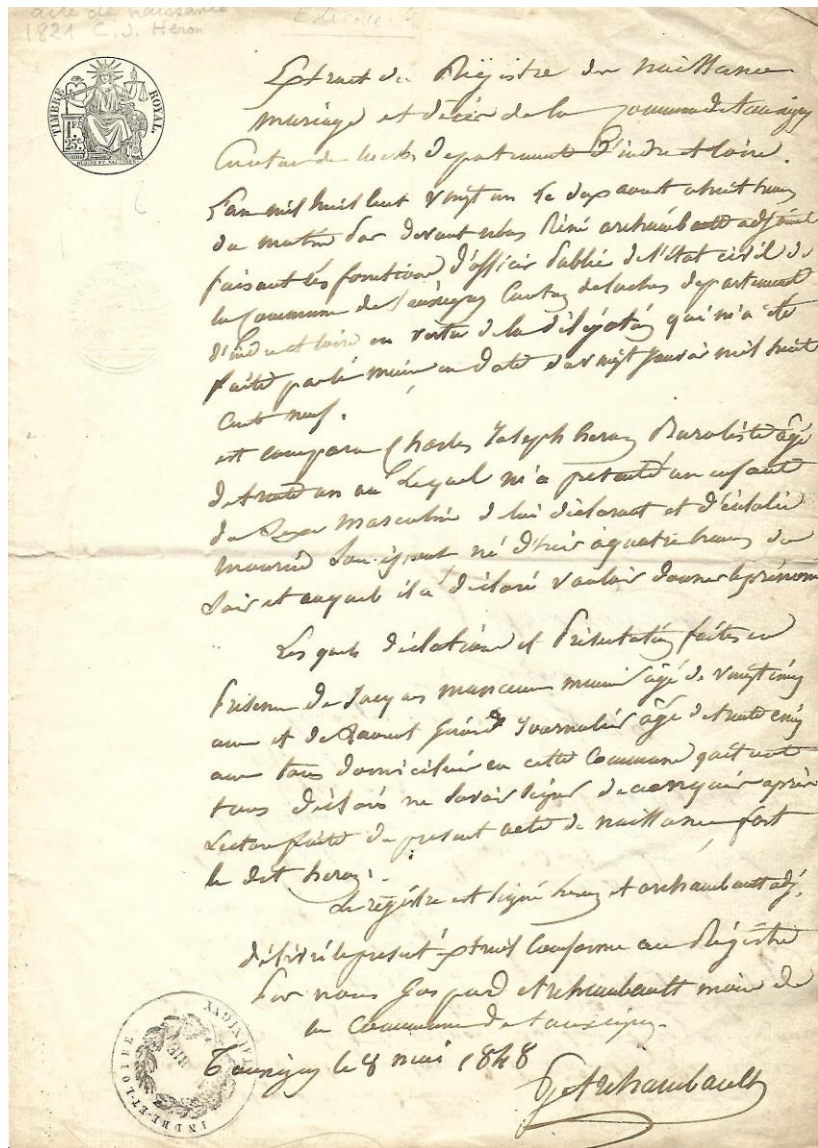 acte de naissance
1821 C. J. Héron
TIMBRE ROYAL.
1 FR
25 C.
Extrait du Régistre de naissance
mariage et décès de la commune de Tauxigny
Canton de Loches departement d'indre et loire.
L'an mil huit cent vingt un le dix aout a huit heures
du matin par devant nous Réné archambault adjoint
faisant les fonctions d'officier Public de l'état civil de
la Commune de Tauxigny Canton de loches departement
d'indre et loire en vertu de la délégation qui m'a été
faite par le maire en date du vingt janvier mil huit
cent neuf.
est comparu Charles Joseph heron Buraliste âgé
de trente un an Lequel m'a présenté un enfant
du Sexe masculin de lui déclarant et d'eulalie
né d'hier à quatre heures du
Soir et auquel il a déclaré vouloir donner le prénom
Les quels déclaration et Présentation faites en
présence de Jacques manceau âgé de vingt cinq
ans et de Laurent Girard Journalier âgé de trente cinq
ans tous domiciliés en cette Commune qui ont
tous déclarés ne savoir signer de ce enquis après
Lecture faite du présent acte de naissance fort
le dit heron.
Le régistre est signé heron et archambault adj.
délivré le présent extrait Conforme au Régistre
Par nous Gaspard Archambault maire de
la Commune de tauxigny.
Tauxigny le 8 mai 1848
G Archambault
MAIRIE DE TAUXIGNY
INDRE-ET-LOIRE